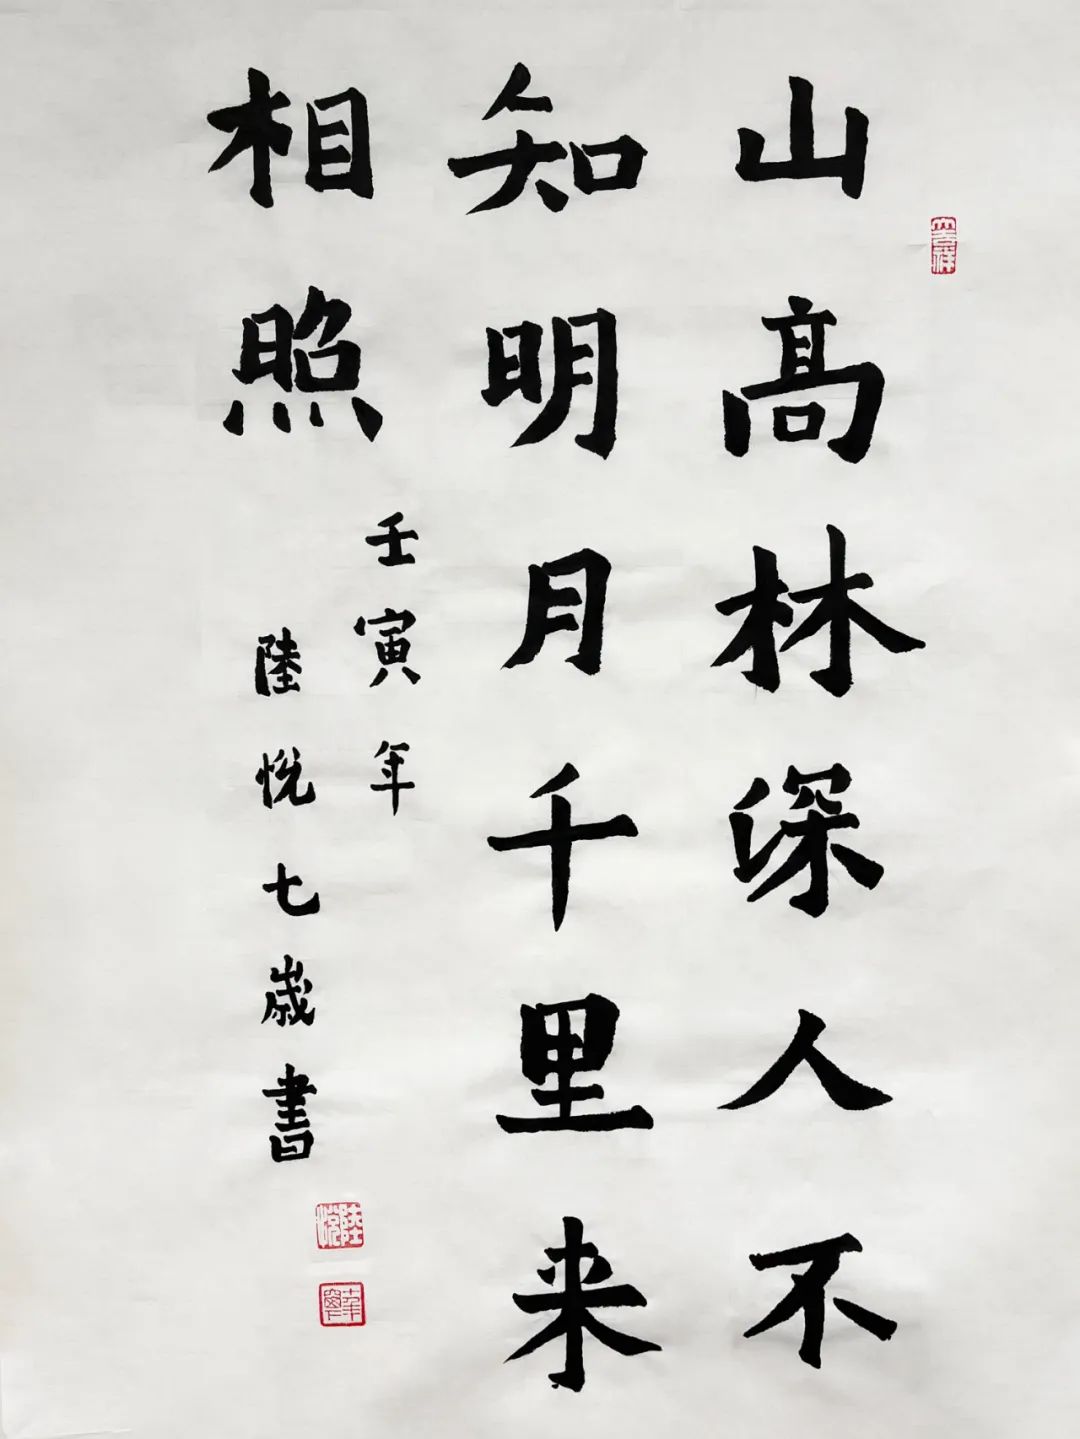 山高林深人不
知明月千里来
相照
壬寅年
陸悦七歲書
陸悦